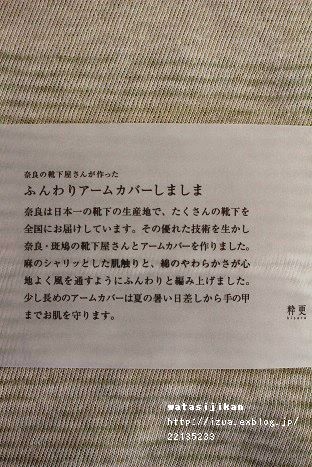 奈良の靴下屋さんが作った
ふんわりアームカバーしましま
奈良は日本一の靴下の生産地で、たくさんの靴下を
全国にお届けしています。その優れた技術を生かし
奈良・斑鳩の靴下屋さんとアームカバーを作りました。
麻のシャリッとした肌触りと、綿のやわらかさが心
地よく風を通すようにふんわりと編み上げました。
少し長めのアームカバーは夏の暑い日差しから手の甲
までお肌を守ります。
粋更
kisara
watasijikan
http://izua.exblog.jp/
22135233